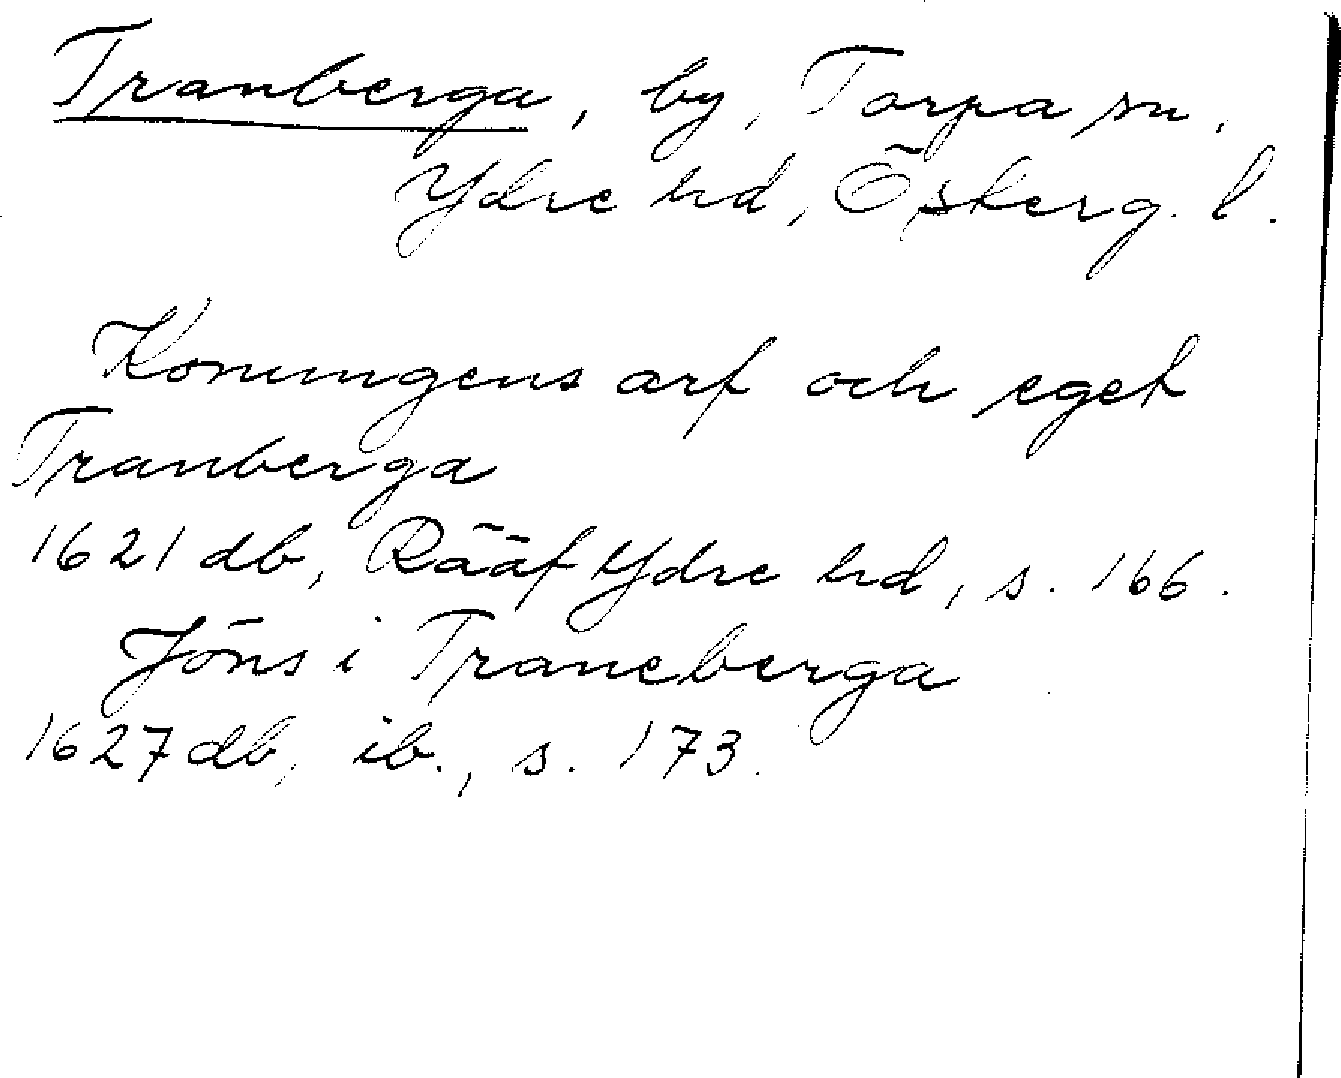 Tranberga, by, Torpa sn,
Ydre hd, Österg. l.
Konungens arf och eget
Tranberga
1621 db, Rääf Ydre hd, s. 166.
Jöns i Traneberga
1627 db, ib., s. 173.